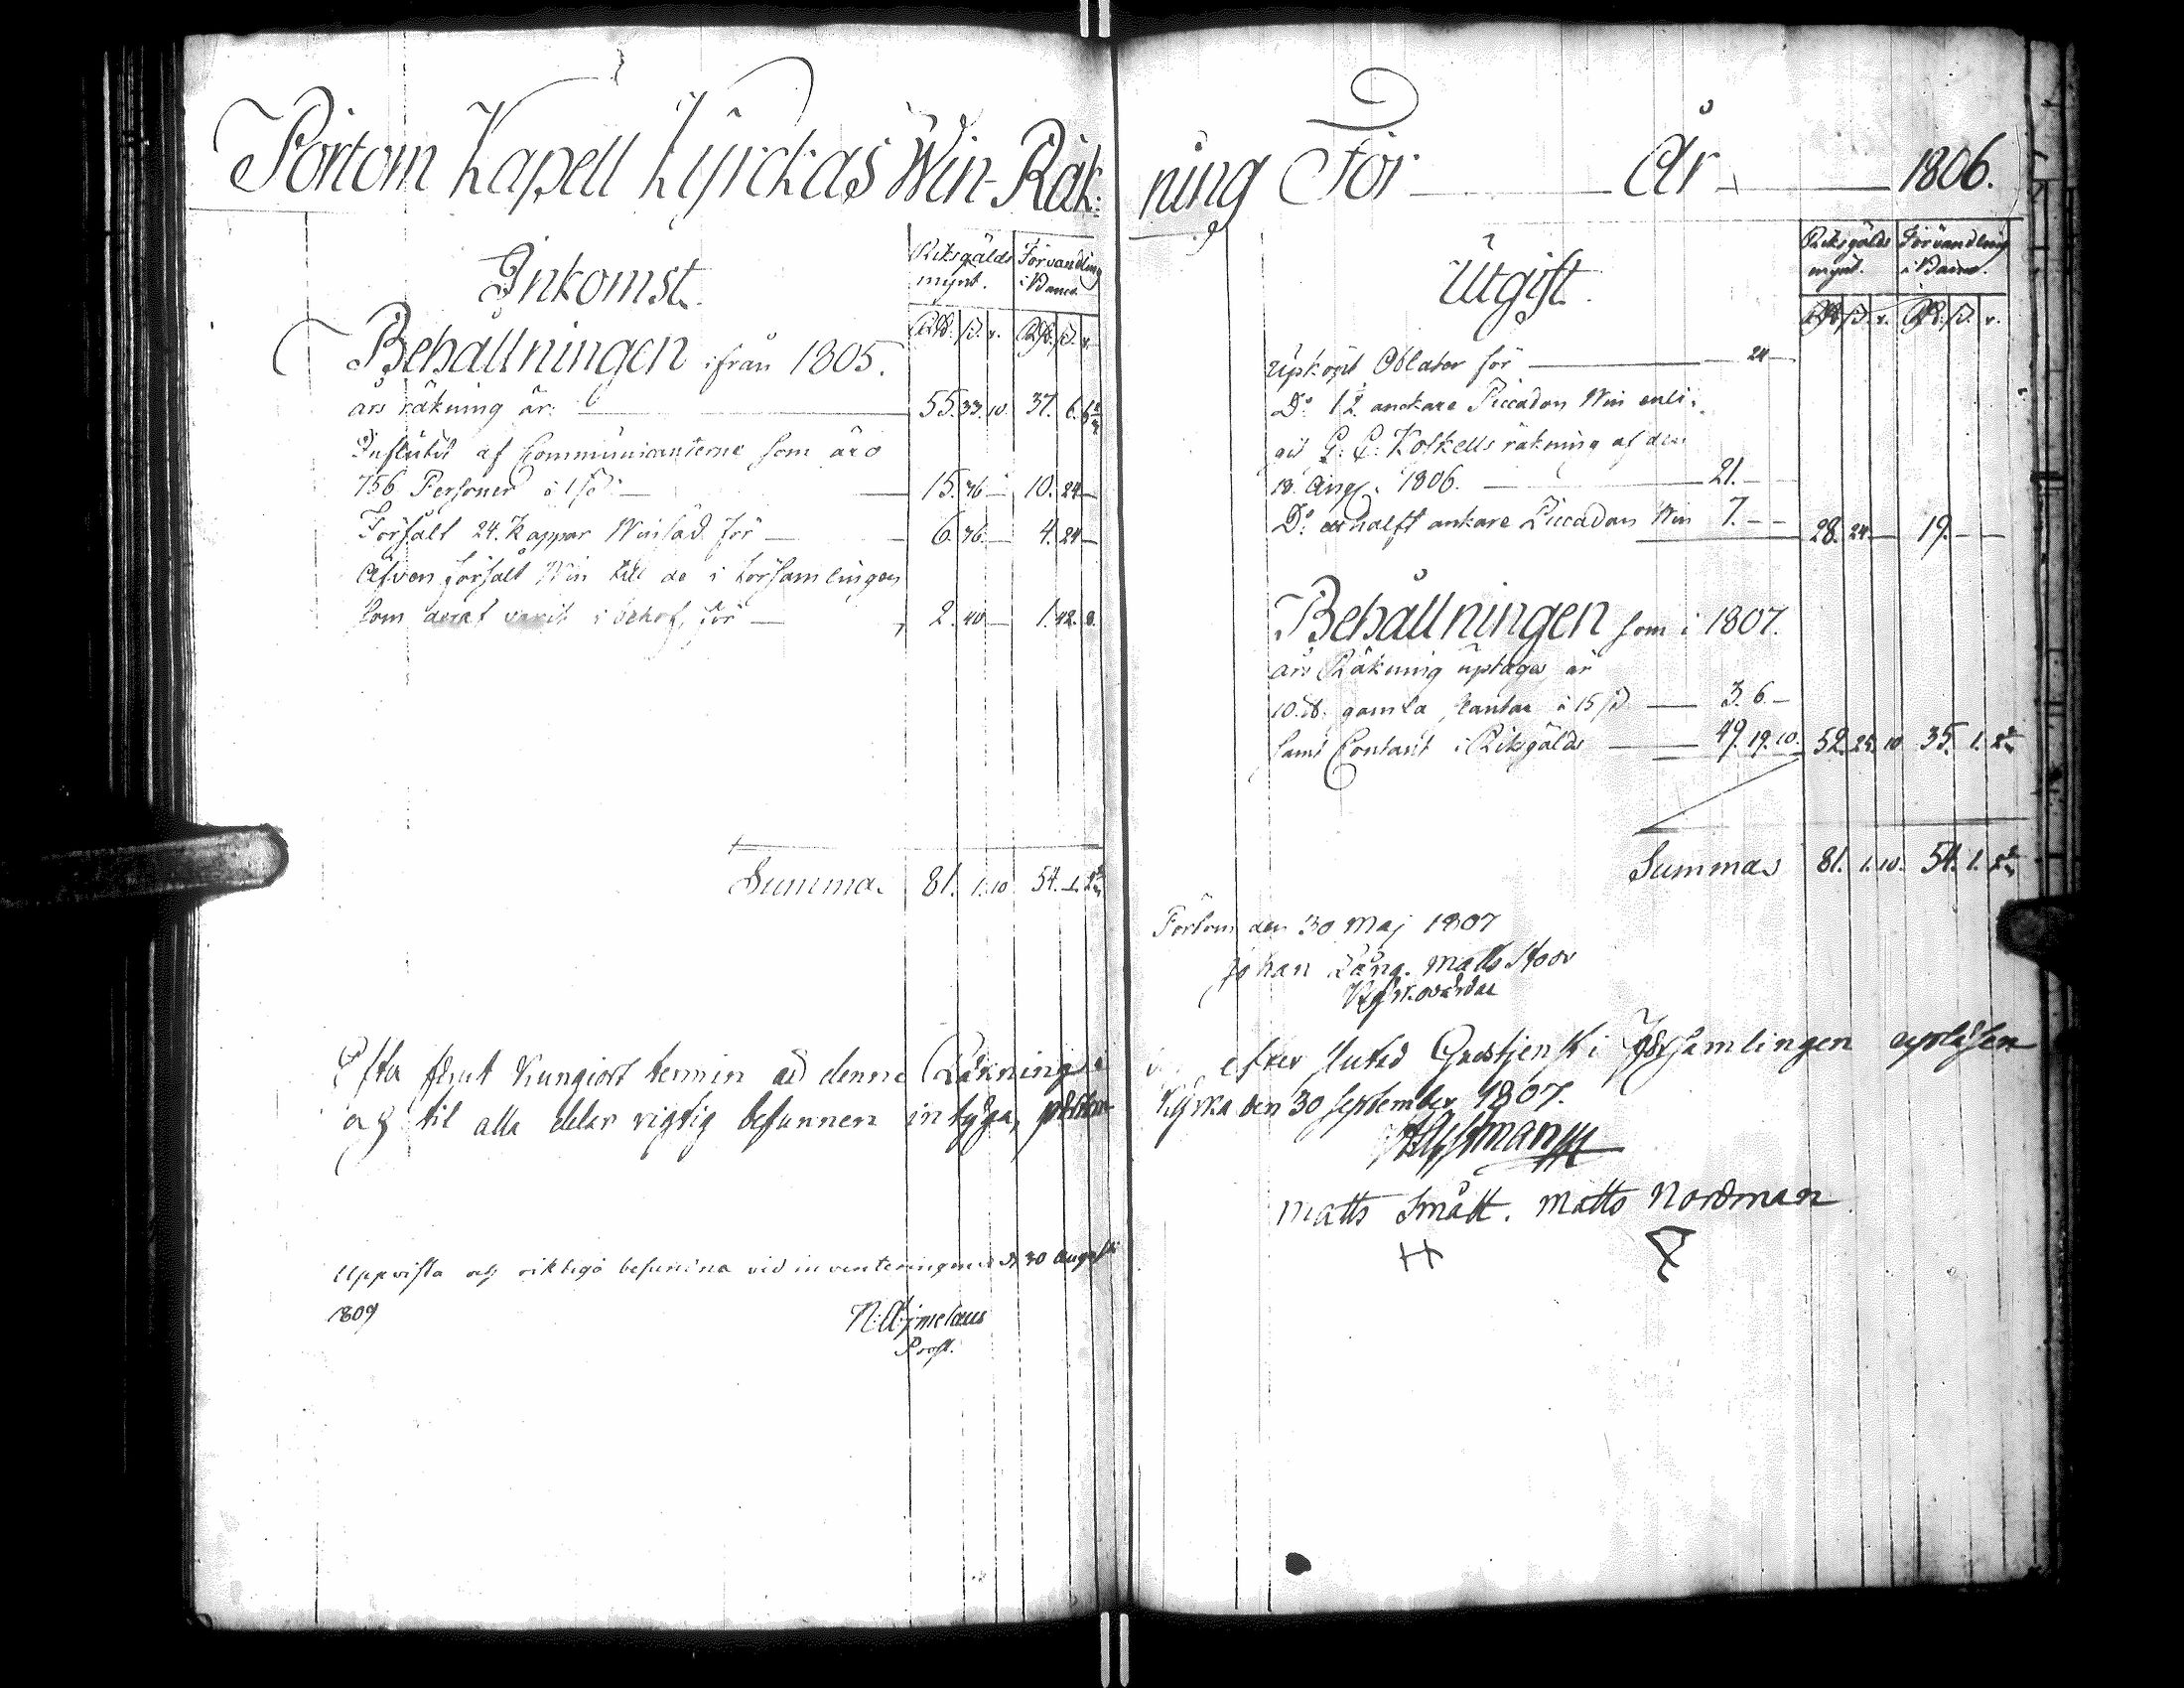 Pörtom Kapell Kyrckas Win-Räk:
Inkomst.
Riksgälds mynt. Förvandling i Banco.
Rd. ß. r. Rd. ß. r.
Behållningen ifrån 1805.
års räkning är: 55. 33. 10. 37. 6.
Influtit af Communicanterne som äro
756 Personer à 1 ß. 15. 36 10. 24
Försålt 24. Kappar Winsäd för 6. 36. 4. 24
Äfven försålt Win till de i Församlingen
som deraf varit i behof, för 2. 40 1. 42. 8.
Summa 81. 1. 10. 54. 1.
Efter förut kungiort termin är denne Räkning
och til alla delar rigtig befunnen intyga,
Uppvista och riktiga befunna vid inventeringen d. 30 Augusti
1809
N: Aejmelaeus
Prost.
ning För År 1806.
Utgift.
Riksgälds mynt. Förvandling i Banco.
Rd. ß. r. Rd. ß. r.
Upköpt Oblater för 24
Do 1½ anckare Piccadon Win enli:
git
räkning af den
18. Aug. 1806. 21.
Do ett halft ankare Piccadon Win 7. 28. 24. 19.
Behållningen som i 1807.
års Räkning uptages är
10. st. gamla kantar à 15 ß. 3. 6
samt Contant i Riksgälds 49. 19. 10. 52. 25. 10 35. 1.
Summa 81. 1. 10. 54. 1.
Pörtom den 30 Maj 1807
Johan Lång. Matts Stoor
Kyrkovärdar
efter slutad Gudstjenst i Församlingen upläsen
Kyrka den 30 September 1807.
Matts Smått. Matts Nordman